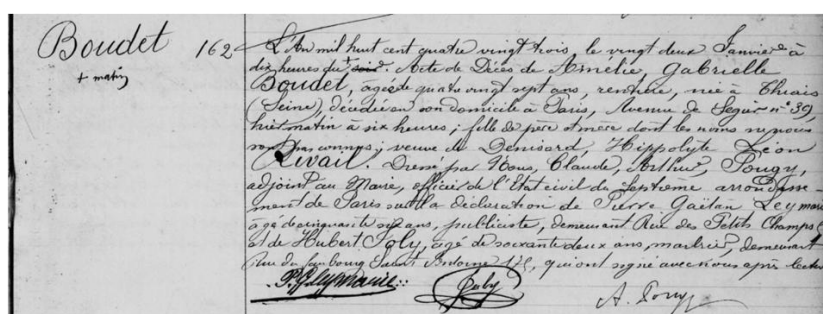 Boudet
+ matin
162
L'An mil huit cent quatre vingt trois, le vingt deux Janvier à
dix heures du + soir. Acte de Décès de Amélie, Gabrielle
Boudet, agée de quatre vingt sept ans, rentière, née à Thiais
(Seine), décédée en son domicile à Paris, Avenue de Ségur n° 39,
hier matin à six heures; fille de père et mère dont les noms ne nous
sont pas connus; veuve de Denisard, Hippolyte Léon
Rivail. Dressé par Nous, Claude, Arthur, Pougy,
adjoint au Maire, officier de l'Etat civil du septième arrondisse-
ment de Paris sur la déclaration de Pierre Gaëtan Leymarie
agé de cinquante ans, publiciste, demeurant Rue des Petits Champs
et de Hubert Joly, agé de soixante deux ans, demeurant
Rue du faubourg Saint Antoine, qui ont signé avec nous après lecture
P. G. Leymarie
Joly
A. Pougy